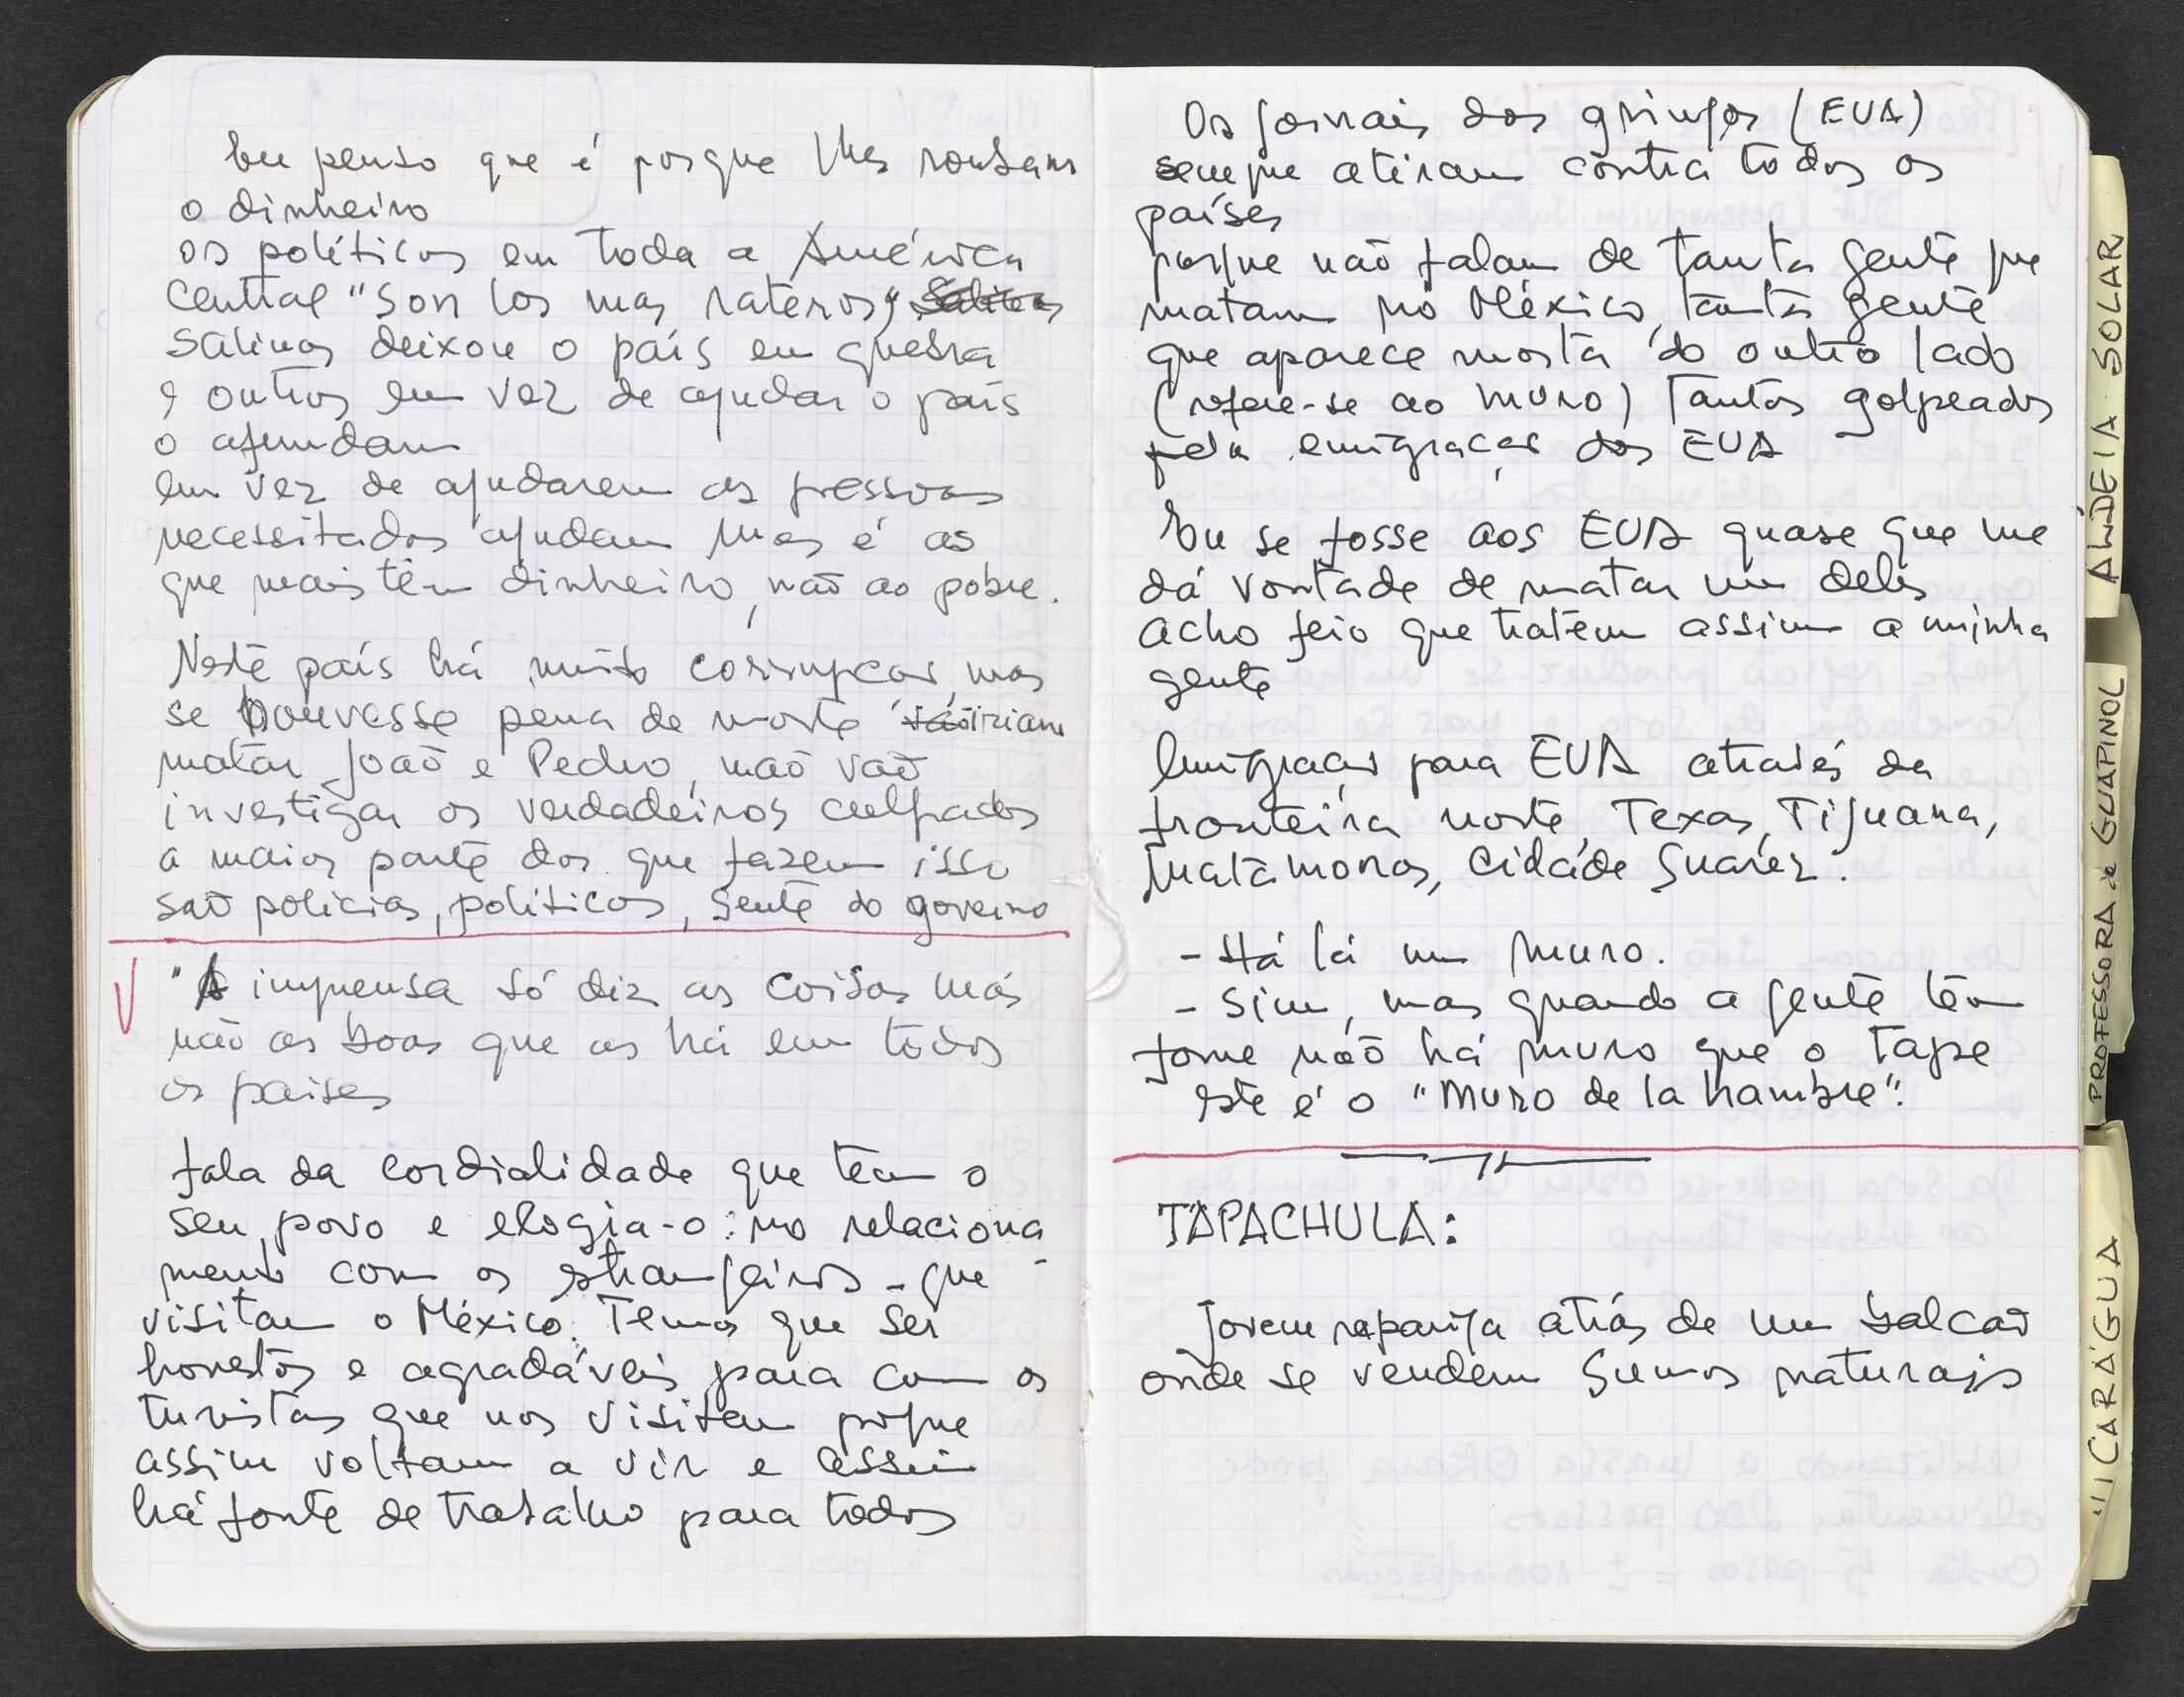 Eu penso que é porque lhes roubam
o dinheiro
os políticos em toda a América
Central "son los mas rateros"
Salinas deixou o país em quebra
e outros em vez de ajudar o país
o afundam
em vez de ajudarem as pessoas
necessitadas ajudam mas é as
que mais têm dinheiro, não ao pobre.
Neste país há muita corrupção, mas
se houvesse pena de morte iriam
matar João e Pedro, não vão
investigar os verdadeiros culpados
a maior parte dos que fazem isso
são policias, políticos, gente do governo
"A imprensa só diz as coisas más
não as boas que as há em todos
os paises
fala da cordialidade que tem o
seu povo e elogia-o: no relaciona-
mento com os estrangeiros - que
visitam o México: Temos que ser
honestos e agradáveis para com os
turistas que nos visitam porque
assim voltam a vir e assim
há fonte de trabalho para todos
Os jornais dos gringos (EUA)
sempre atiram contra todos os
países
porque não falam de tanta gente que
matam no México, tanta gente
que aparece morta do outro lado
(refere-se ao muro) tantos golpeados
pela emigração dos EUA
Eu se fosse aos EUA quase que me
dá vontade de matar um deles
acho feio que tratem assim a minha
gente
Emigração para EUA através da
fronteira norte, Texas, Tijuana,
Matamoros, Cidade Juaréz.
- Há lá um muro.
- Sim, mas quando a gente tem
fome não há muro que o tape
este é o "muro de la hambre".
TAPACHULA:
Jovem rapariga atrás de um balcão
onde se vendem sumos naturais
ALDEIA SOLAR
PROFESSORA de GUAPINOL
NICARÁGUA